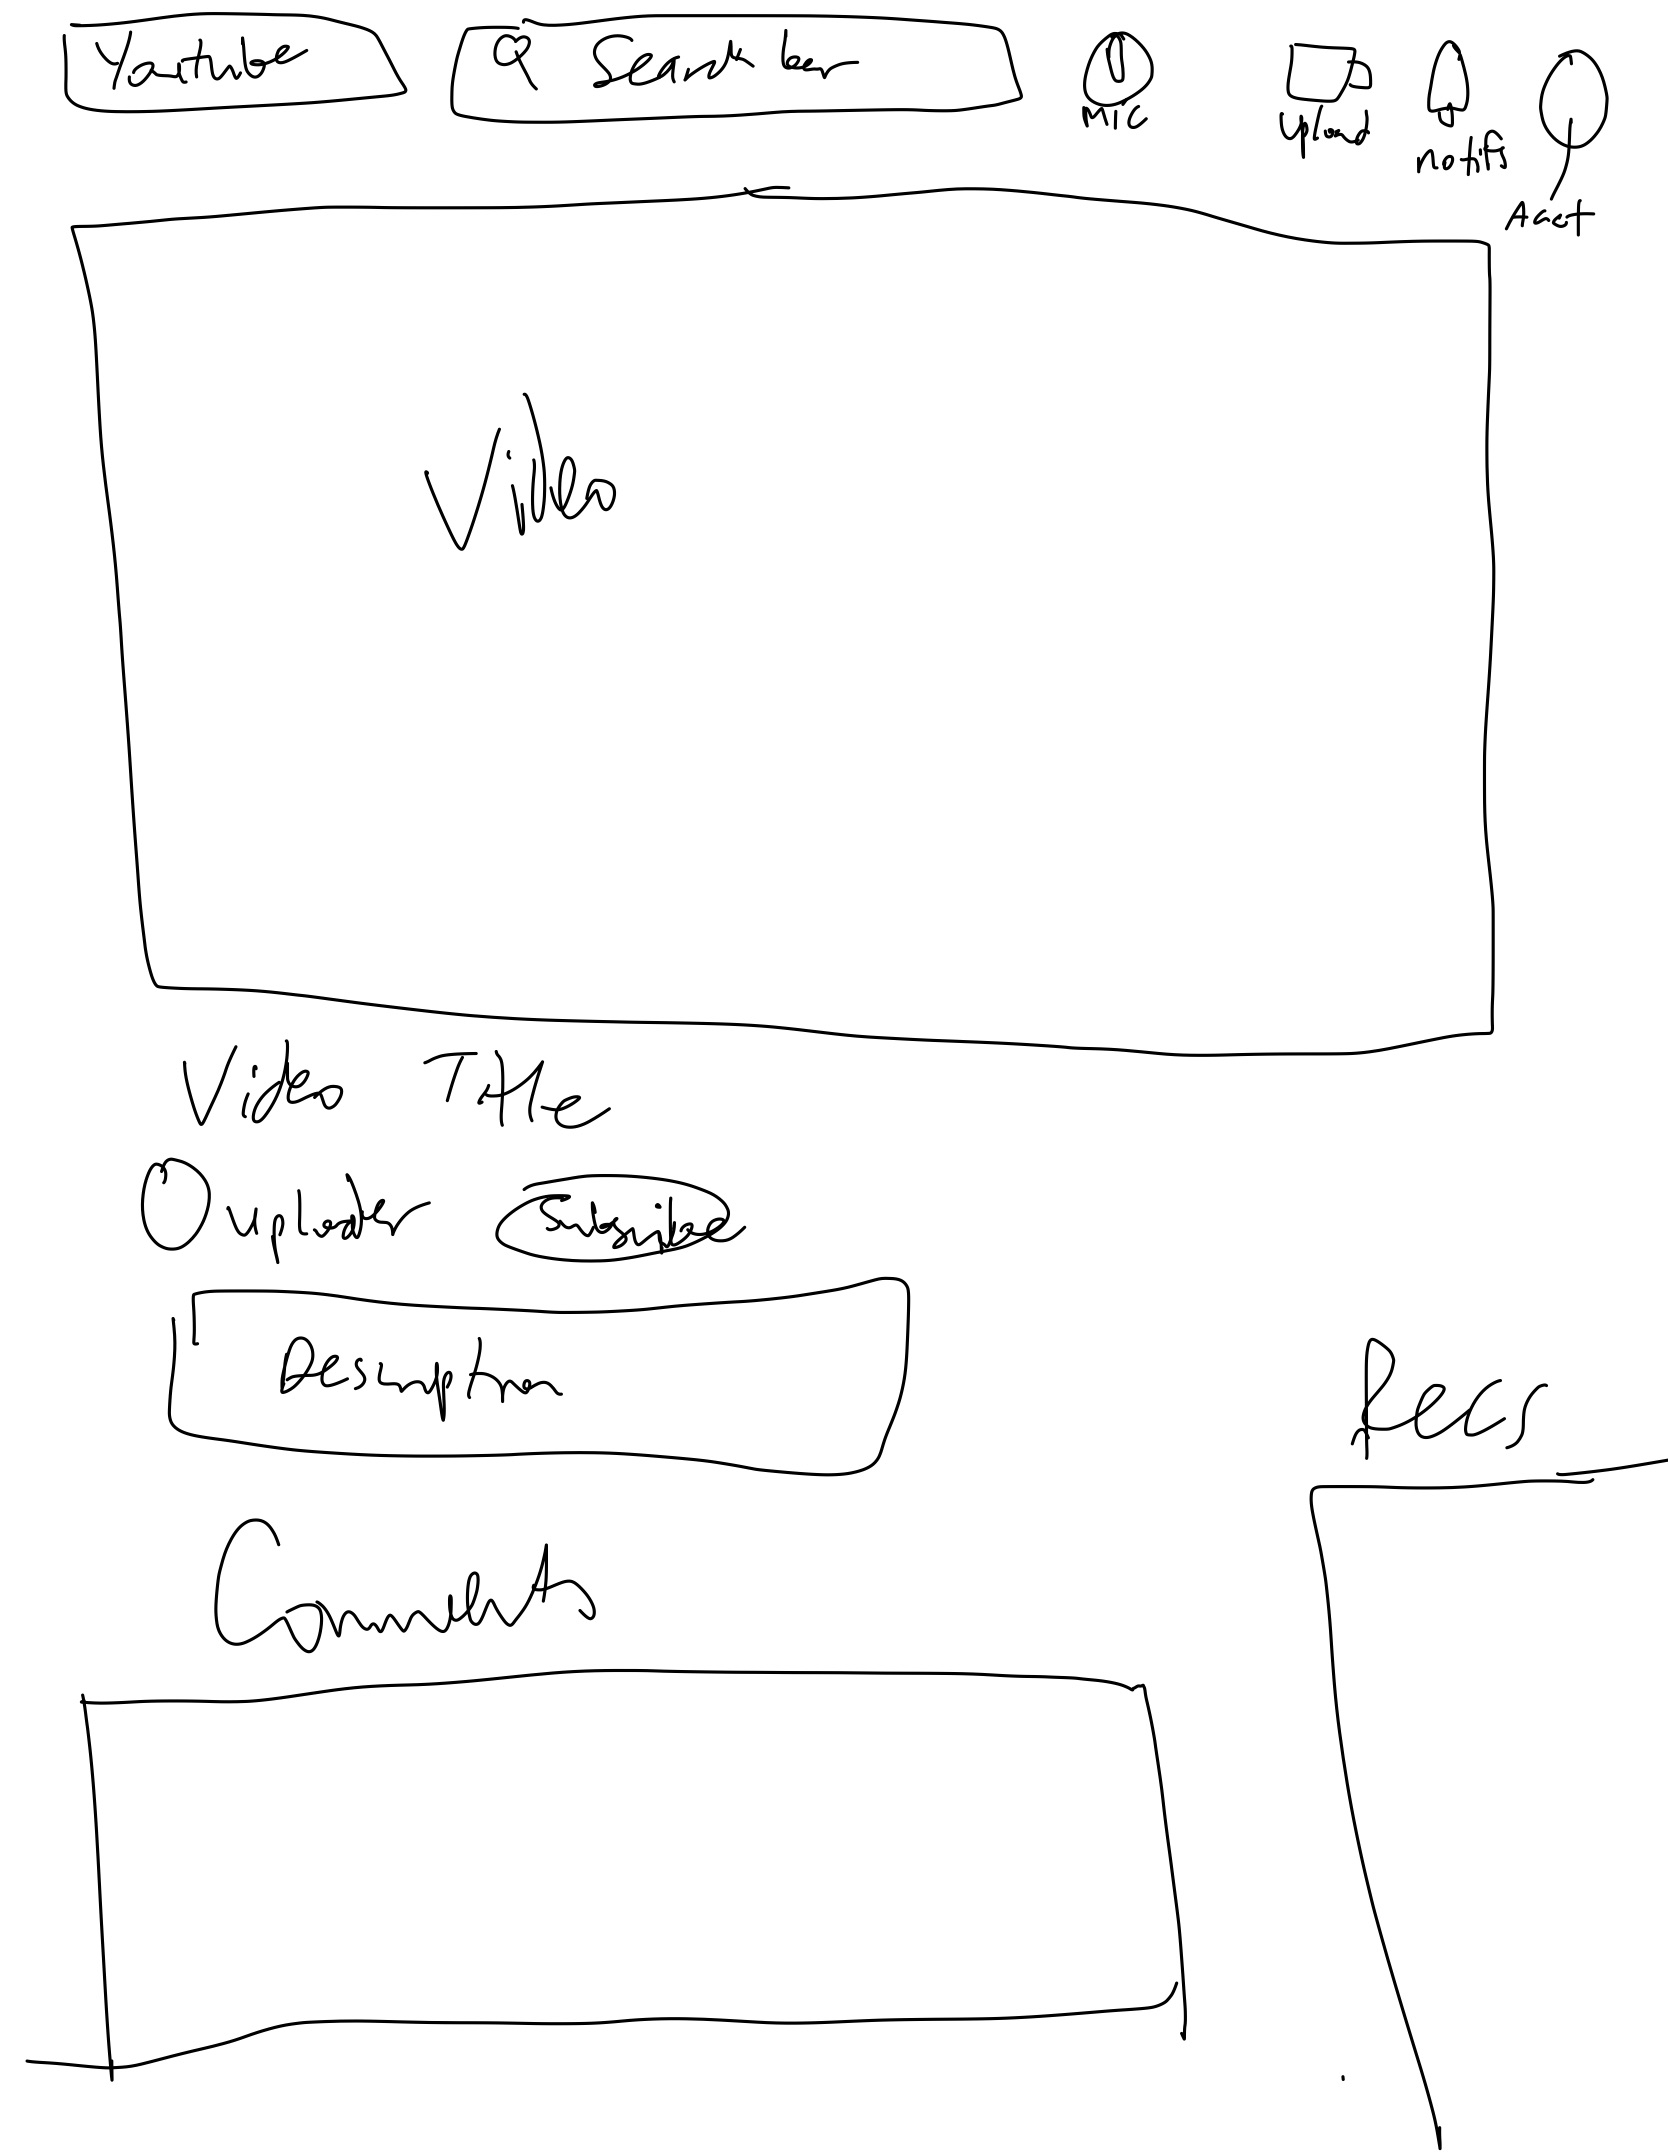 Youtube
Search bar
Mic
upload
notifs
Acct
Video
Video Title
uploader Subscribe
Description
Recs
Comments